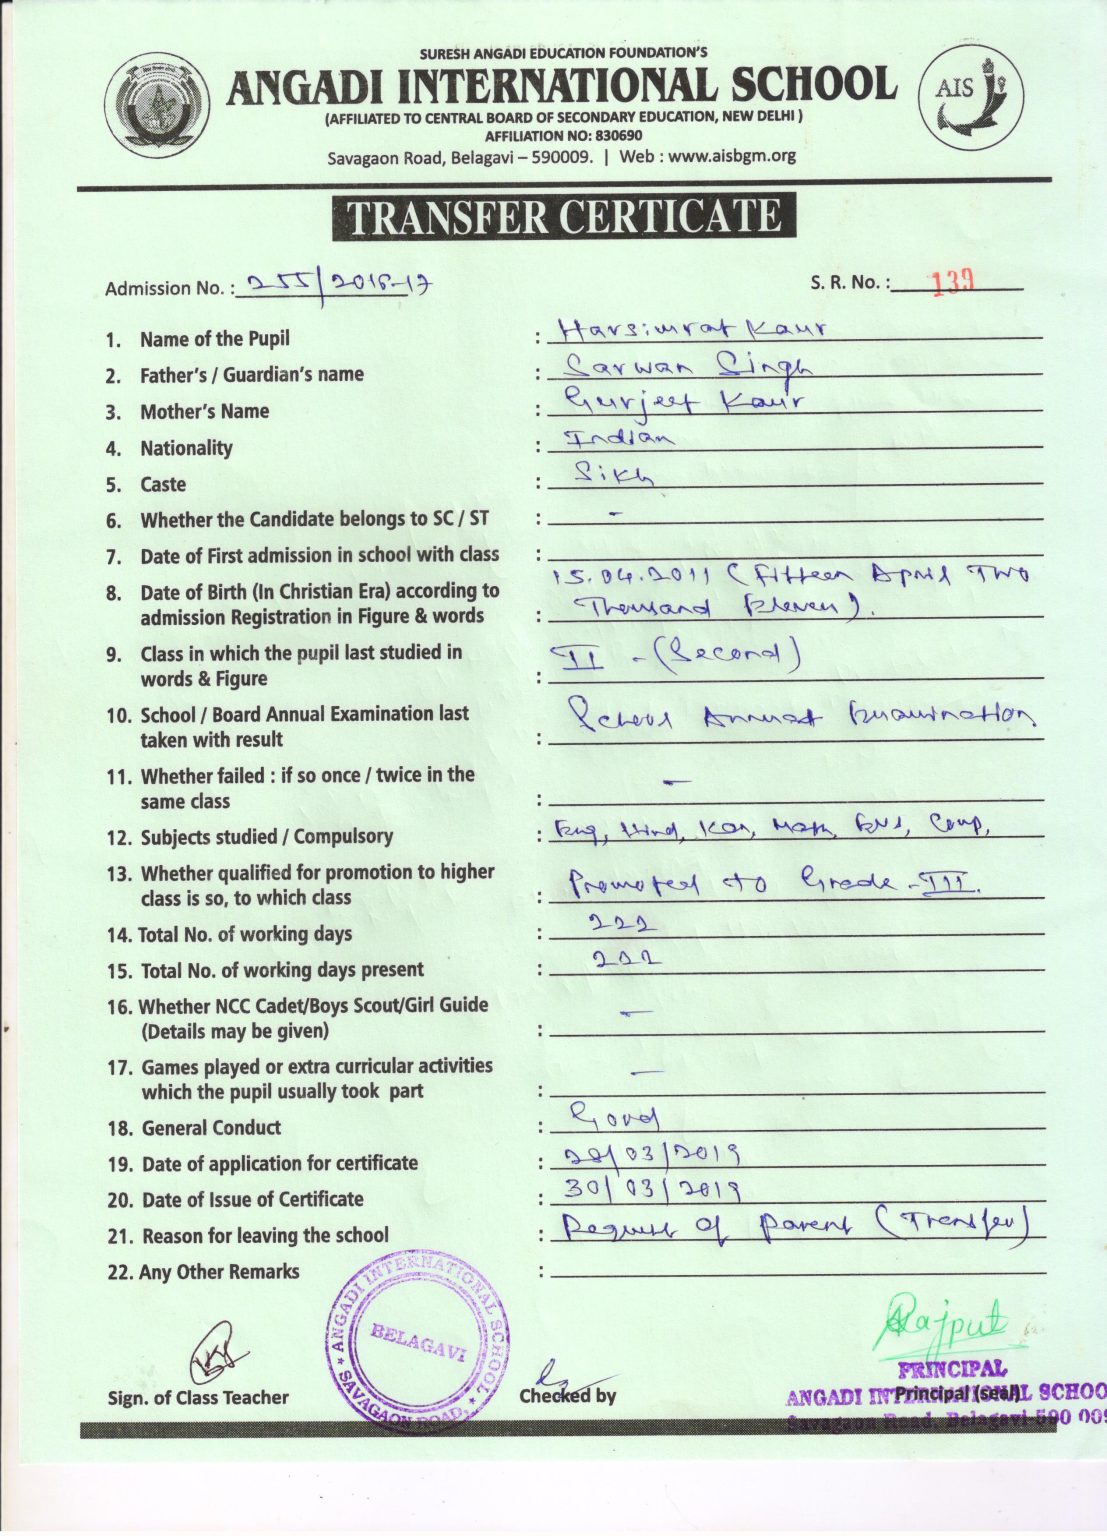 SURESH ANGADI EDUCATION FOUNDATION'S
ANGADI INTERNATIONAL SCHOOL
AIS
(AFFILIATED TO CENTRAL BOARD OF SECONDARY EDUCATION, NEW DELHI )
AFFILIATION NO: 830690
Savagaon Road, Belagavi – 590009. | Web : www.aisbgm.org
TRANSFER CERTICATE
Admission No. : 255/2016-17 S. R. No. : 139
1. Name of the Pupil : Harsimrat Kaur
2. Father's / Guardian's name : Sarwan Singh
3. Mother's Name : Gurjeet Kaur
4. Nationality : Indian
5. Caste : Sikh
6. Whether the Candidate belongs to SC / ST : -
7. Date of First admission in school with class :
8. Date of Birth (In Christian Era) according to 15.04.2011 (Fifteen April Two
admission Registration in Figure & words : Thousand Eleven).
9. Class in which the pupil last studied in II - (Second)
words & Figure :
10. School / Board Annual Examination last School Annual Examination
taken with result :
11. Whether failed : if so once / twice in the -
same class :
12. Subjects studied / Compulsory : Eng, Hind, Kan, Math, EVS, Comp,
13. Whether qualified for promotion to higher
class is so, to which class : Promoted to Grade - III.
14. Total No. of working days : 222
15. Total No. of working days present : 222
16. Whether NCC Cadet/Boys Scout/Girl Guide -
(Details may be given) :
17. Games played or extra curricular activities -
which the pupil usually took part :
18. General Conduct : Good
19. Date of application for certificate : 28/03/2019
20. Date of Issue of Certificate : 30/03/2019
21. Reason for leaving the school : Request of Parent (Transfer)
22. Any Other Remarks :
ANGADI INTERNATIONAL SCHOOL
BELAGAVI
SAVAGAON ROAD,
Rajput
PRINCIPAL
Sign. of Class Teacher Checked by Principal (seal)
ANGADI INTERNATIONAL SCHOO
Savagaon Road, Belagavi-590 009